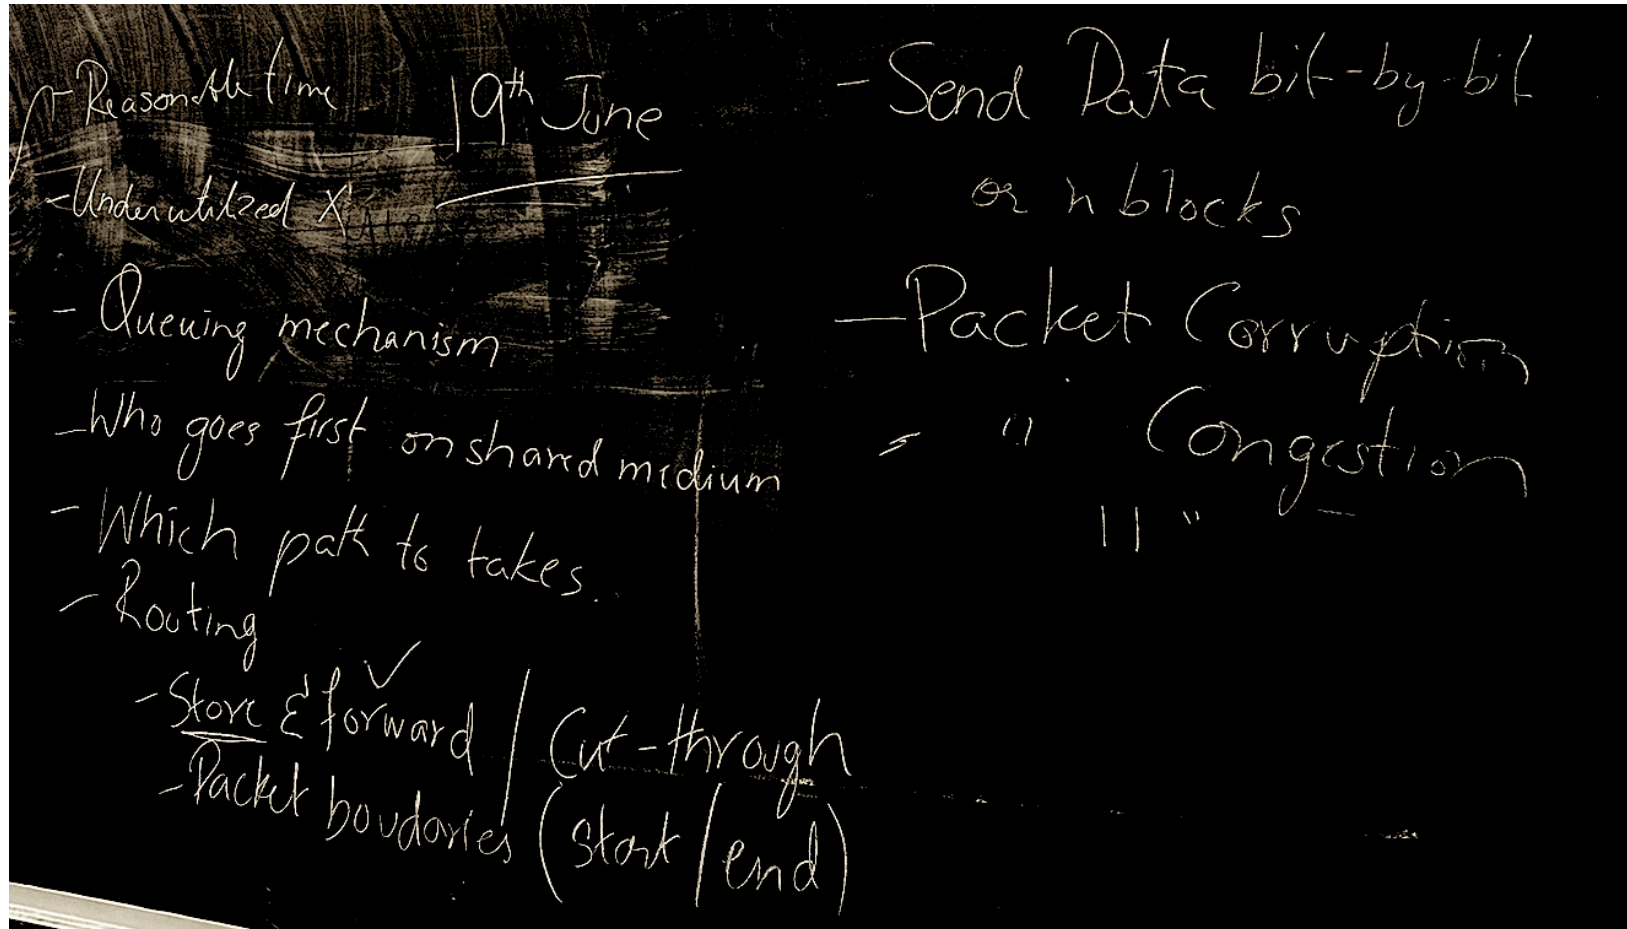 - Reasonable time
19th June
- Underutilized X
- Queuing mechanism
- Who goes first on shared medium
- Which path to takes.
- Routing
- Store & forward ✓ / Cut-through
- Packet boudaries (start/end)
- Send Data bit-by-bit
or n blocks
- Packet Corruption
- " Congestion
" "